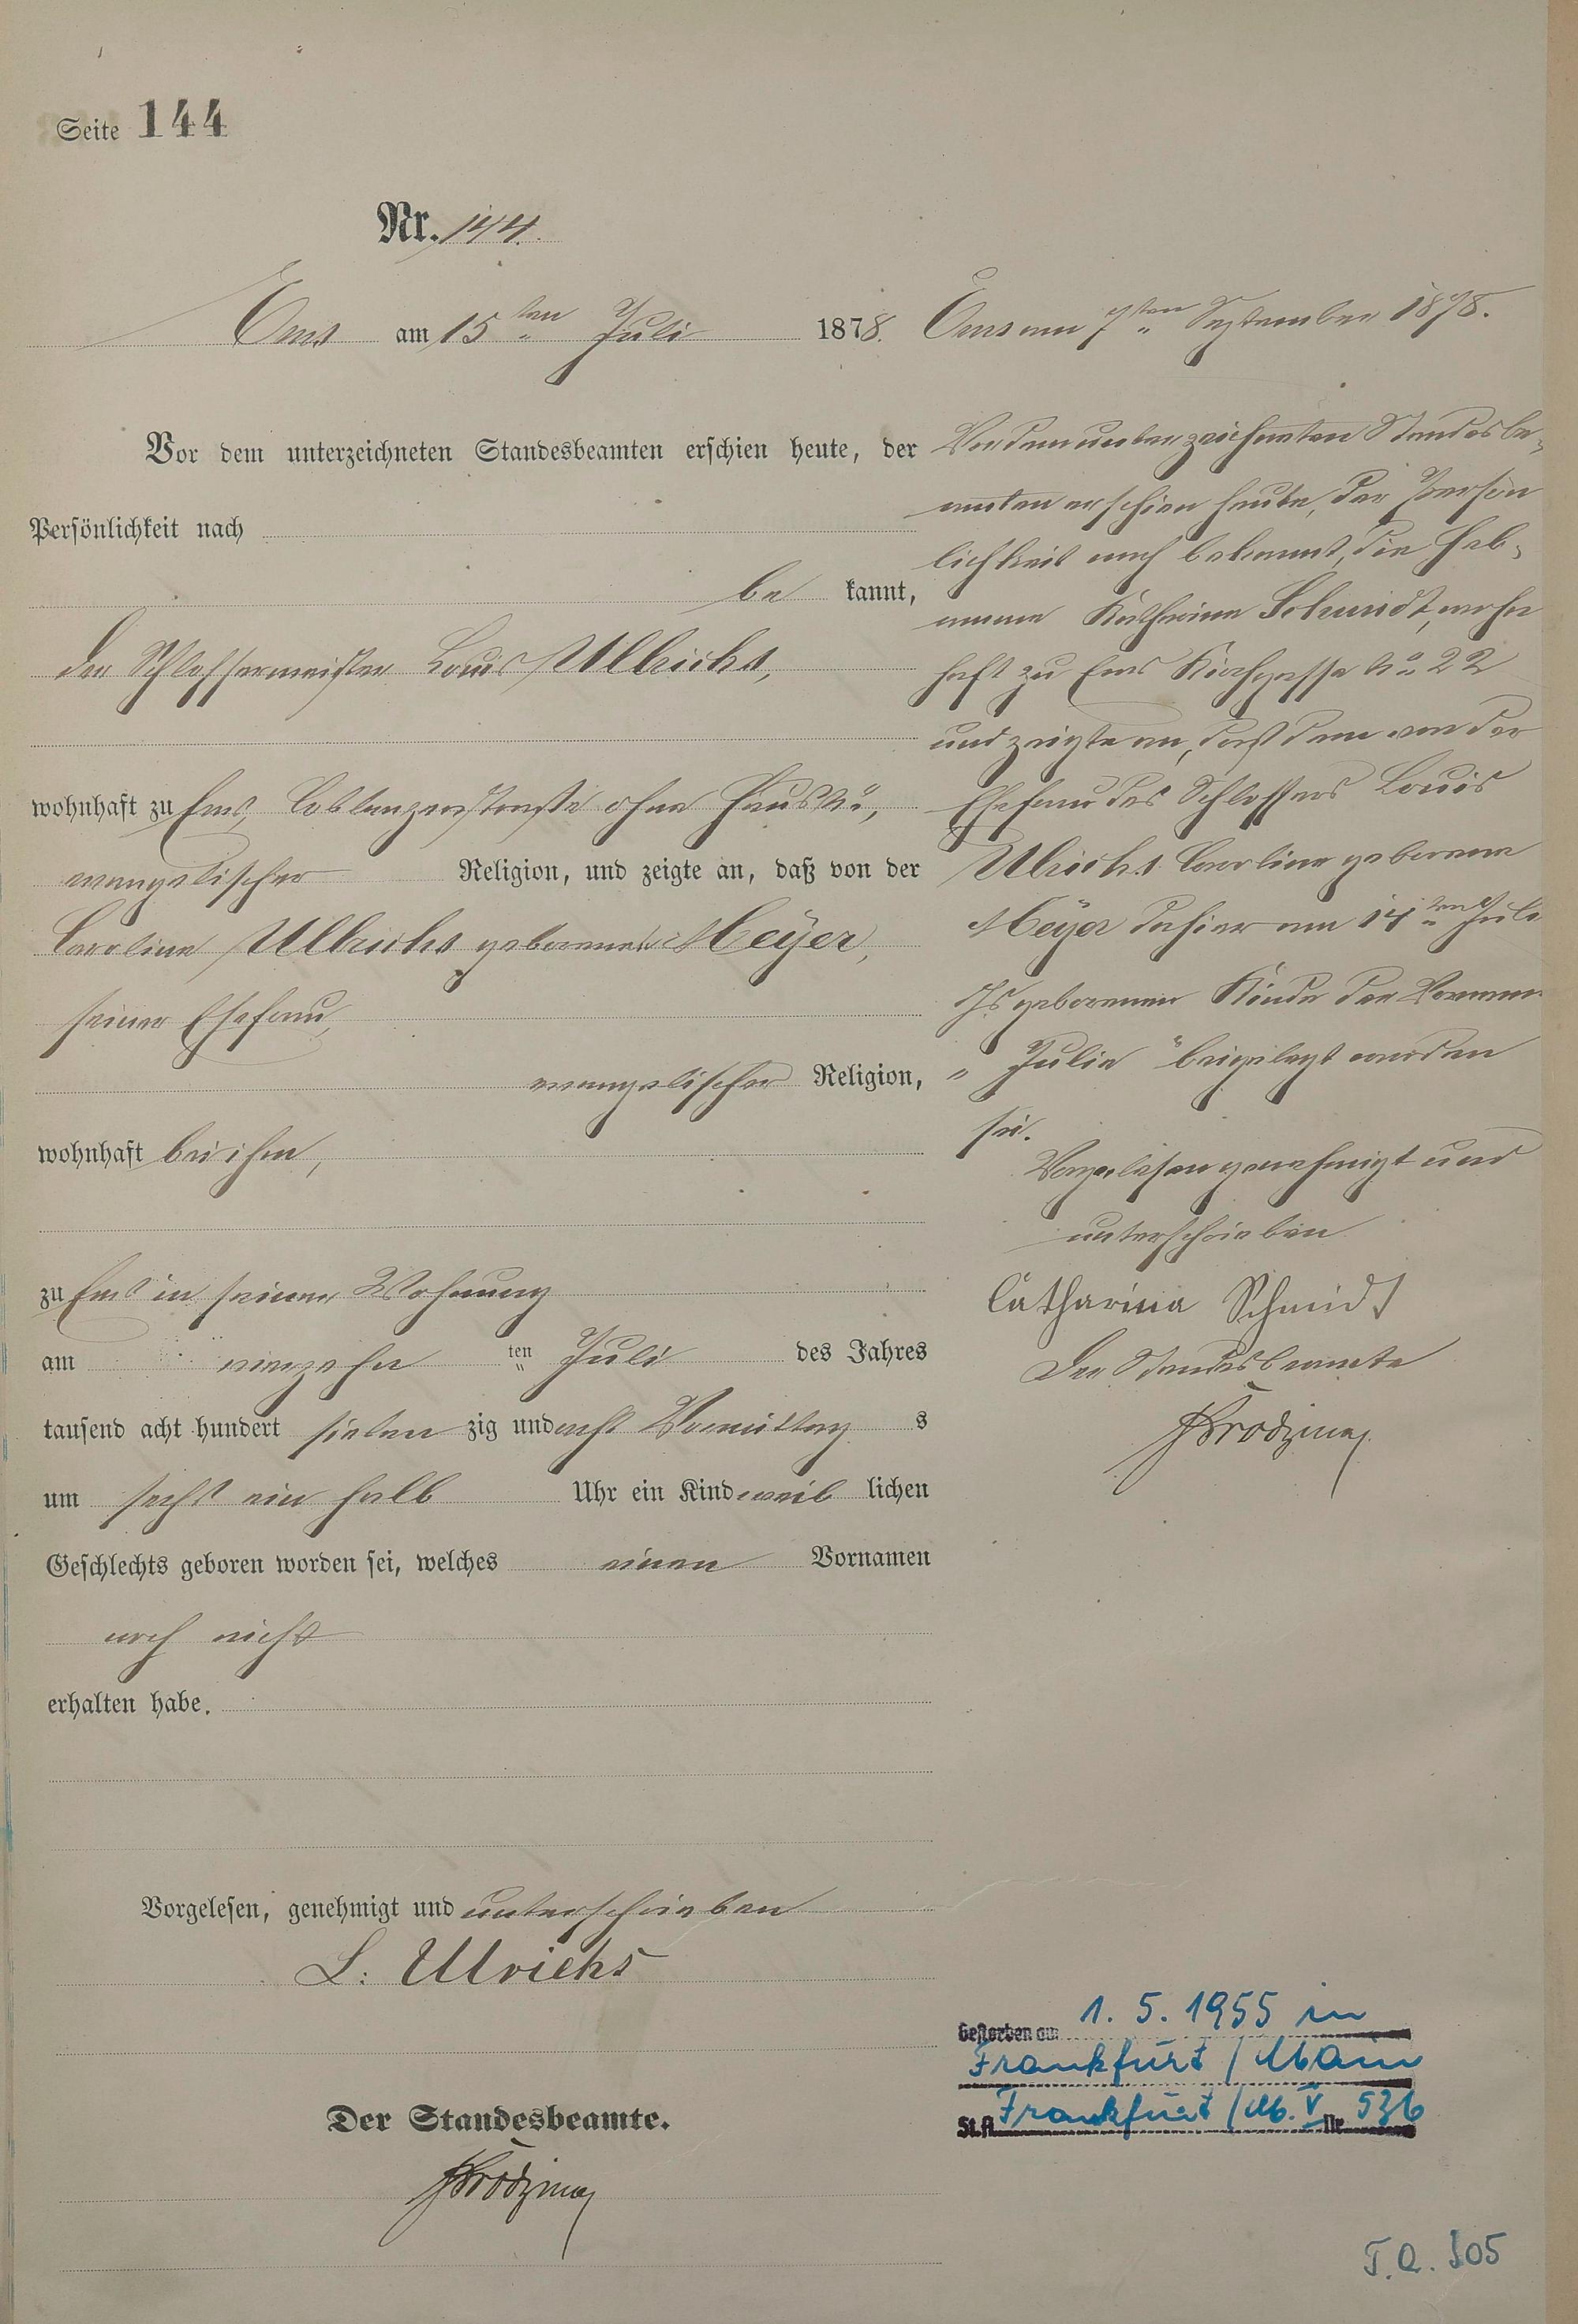 Seite 144
Nr. 144.
Ems am 15ten Juli 1878.
Vor dem unterzeichneten Standesbeamten erschien heute, der
Persönlichkeit nach
be kannt,
der Schlossermeister Louis Ullrichs,
wohnhaft zu Ems, Coblenzerstraße ohne Haus No,
evangelischer Religion, und zeigte an, daß von der
Caroline Ullrichs geborenen Meÿer,
seiner Ehefrau,
evangelischer Religion,
wohnhaft bei ihm,
zu Ems in seiner Wohnung
am vierzehn ten Juli des Jahres
tausend acht hundert sieben zig und acht Vormittag s
um sechs ein halb Uhr ein Kind weib lichen
Geschlechts geboren worden sei, welches einen Vornamen
noch nicht
erhalten habe.
Vorgelesen, genehmigt und unterschrieben
L. Ulrichs
Der Standesbeamte.
Ems am 7ten September 1878.
Vor dem unterzeichneten Standesbe-
amten erschien heute, der Persön
lichkeit nach bekannt, die Heb-
amme Katharina Schmidt, wohn
haft zu Ems Kirchgasse No 22
und zeigte an, daß dem von der
Ehefrau des Schlossers Louis
Ulrichs Caroline geborene
Meÿer dahier am 14ten Juli
Js geborenen Kinde der Vorname
„ Julie " beigelegt worden
sei.
Vorgelesen genehmigt und
unterschrieben
Catharina Schmidt
Der Standesbeamte
Gestorben am 1. 5. 1955 in
Frankfurt / Main
St.A. Frankfurt / M. V Nr. 536